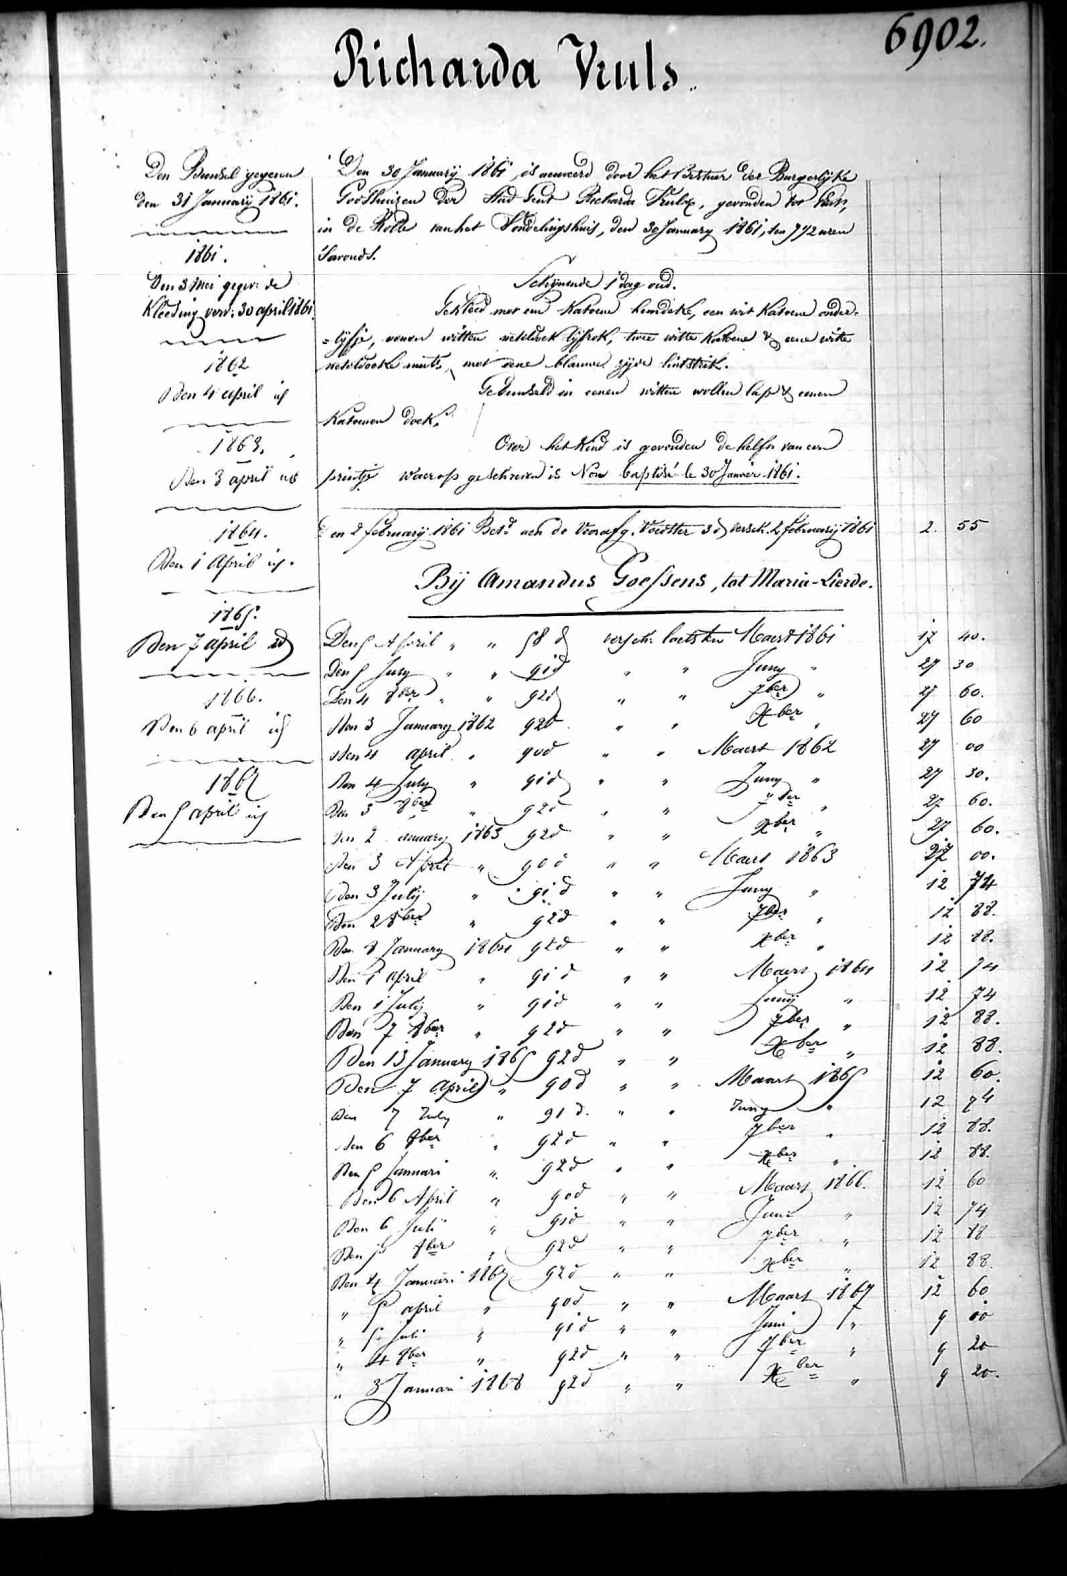 6902.
Richarda Vuls.
Den Bundel gegeven
den 31 January 1861.
1861.
Den 3 Mei gegev: de
Kleeding verv: 30 april 1861
1862
Den 4 april id
1863.
Den 3 april id
1864.
Den 1 April id.
1865.
Den 7 april id
1866.
Den 6 april id
1867
Den 5 april id
Den 30 January 1861, is aenveerd door het Bestuer der Burgerlyke
Godshuizen der Stad Gent Richarda , gevonden
in de Rolle van het Vondelingshuis, den 30 January 1861, ten 7 1/2 uren
's avonds.
Schynende 1 dag oud.
Gekleed met een Katoene hemdeke, een wit Katoene onder-
=lyfje, witten neteldoek lyfrok, twee witte Katoene & eene witte
neteldoeke muts, met eene blauwe zyde lintstrik.
Gebunseld in eenen witten wollen lap & eenen
Katoenen doek.
Over het Kind is gevonden de helft van een
printje waerop geschreven is Non baptisé le 30 Janvier 1861.
en 2 february 1861 Bet.d aen de Voorafg. Voedster 3 d versch. 2 february 1861 2. 55
Bij Amandus Goessens, tot Maria-Lierde.
Den 5 April " " 58 d versch. laetsten Maert 1861 17 40.
Den 5 July " " 91 d " " Juny " 27 30
Den 4 8ber " " 92 d " " 7ber " 27 60.
Den 3 January 1862 92 d " " Xber " 27 60
Den 4 april " 90 d " " Maert 1862 27 00
Den 4 July " 91 d " " Juny " 27 30.
Den 3 8ber " 92 d " " 7ber " 27 60.
Den 2 January 1863 92 d " " Xber " 27 60.
Den 3 April " 90 d " " Maert 1863 27 00.
Den 3 July " 91 d " " Juny " 12 74
Den 2 8ber " 92 d " " 7ber " 12 88.
Den 8 January 1864 92 d " " Xber " 12 88.
Den 1 april " 91 d " " Maert 1864 12 74
Den 1 July " 91 d " " Juny " 12 74
Den 7 8ber " 92 d " " 7ber " 12 88.
Den 13 January 1865 92 d " " Xber " 12 88.
Den 7 April " 90 d " " Maart 1865 12 60.
Den 7 July " 91 d. " " Juny " 12 74
Den 6 8ber " 92 d " " 7ber " 12 88.
Den 5 Januari " 92 d " " Xber " 12 88.
Den 6 April " 90 d " " Maart 1866. 12 60
Den 6 Julij " 91 d " " Juni " 12 74
Den 5 8ber " 92 d " " 7ber " 12 88
Den 4 Januari 1867 92 d " " Xber " 12 88.
" 5 april " 90 d " " Maart 1867 12 60
" 5 Juli " 91 d " " Juni " 9 10
" 4 8ber " 92 d " " 7ber " 9 20
" 3 Januari 1868 92 d " " Xber " 9 20.